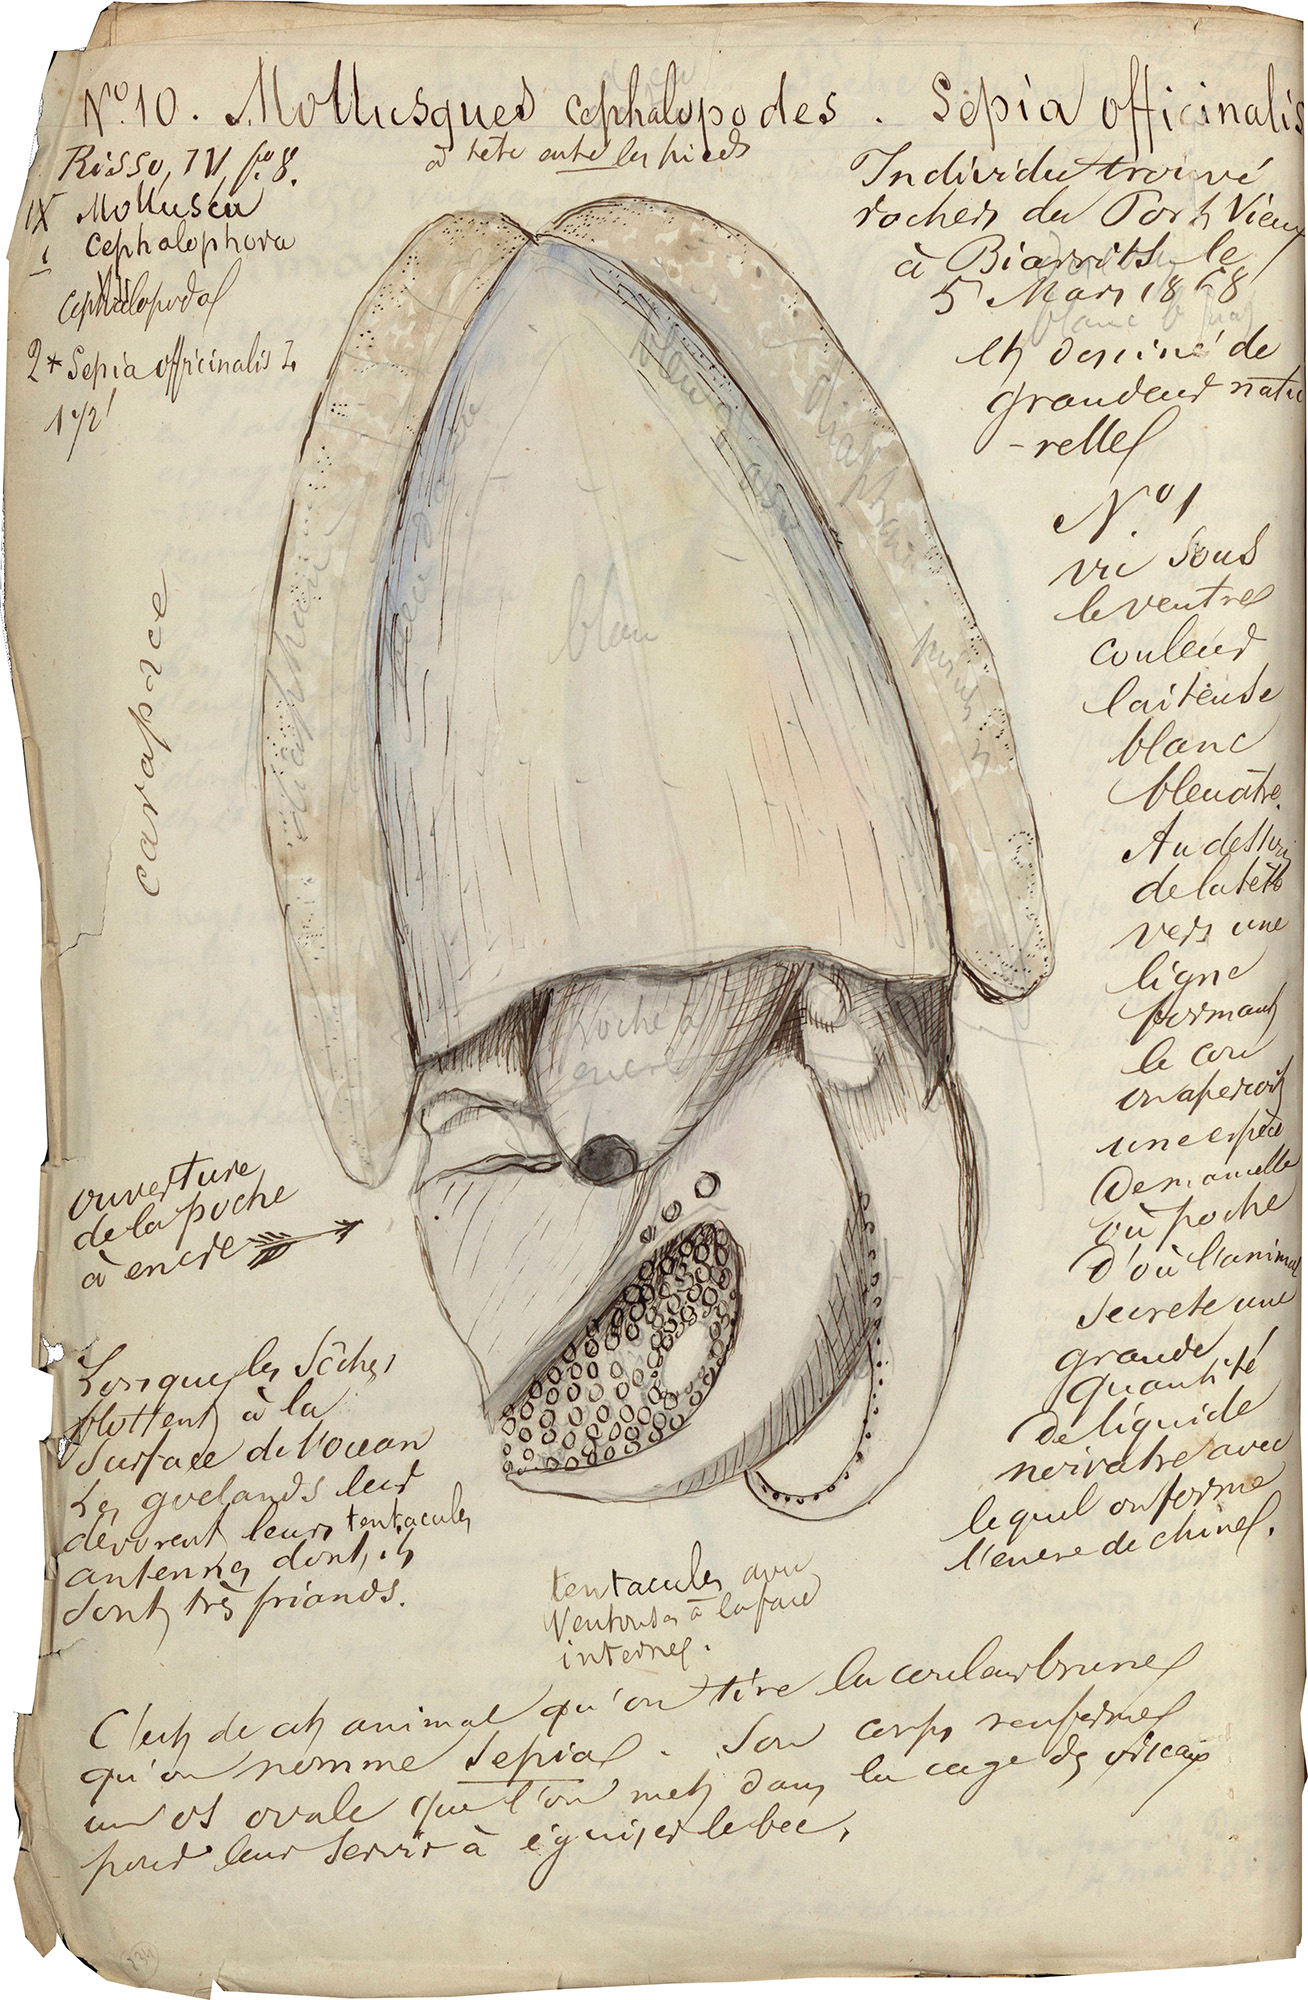 N° 10. Mollusques cephalopodes. Sepia officinalis
à tête entre les pieds
Risso, IV, po 8.
IX Mollusca
1 Cephalophora
cephalopodal
2 * Sepia officinalis L
1 1/2
Individu trouvé
rochers du Port Vieux
à Biarritz le
5 Mars 1868
et dessiné de
grandeur natu
-relle
N° 1
vu sous
le ventre
couleur
laiteuse
blanc
bleuâtre.
Au dessus
de la tête
vers une
ligne
formant
le cou
on aperçoit
une espèce
de mamelle
où poche
d'où l'animal
secrete une
grande
quantité
de liquide
noiratre avec
lequel on forme
l'encre de chine.
carapace
bleuatre
diaphane
blanc
diaphane
poche à
encre
ouverture
de la poche
à encre
Lorsque les Sêches
flottent à la
surface de l'ocean
Les goelands leur
devorent leurs tentacules
antennes dont ils
sont très friands.
tentacules avec
Ventouses à la face
interne.
C'est de cet animal qu'on tire la couleur brune
qu'on nomme Sepia. Son corps renferme
un os ovale que l'on met dans la cage des oiseaux
pour leur servir à éguiser le bec.